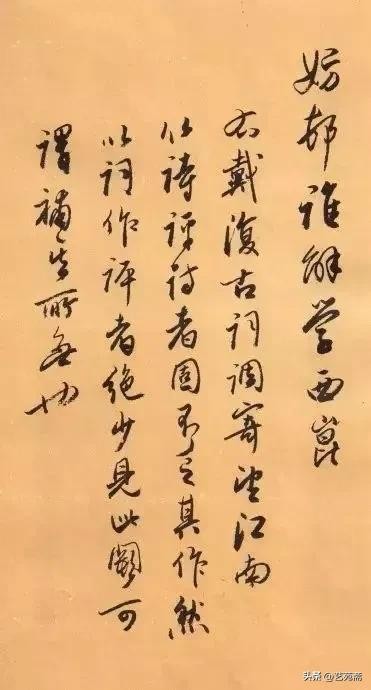 妨邨誰解学西崑
右戴復古词调寄望江南
以诗评诗者固不乏其作然
以词作评者绝少见此阕可
谓補其所無也
头条 @艺苑斋